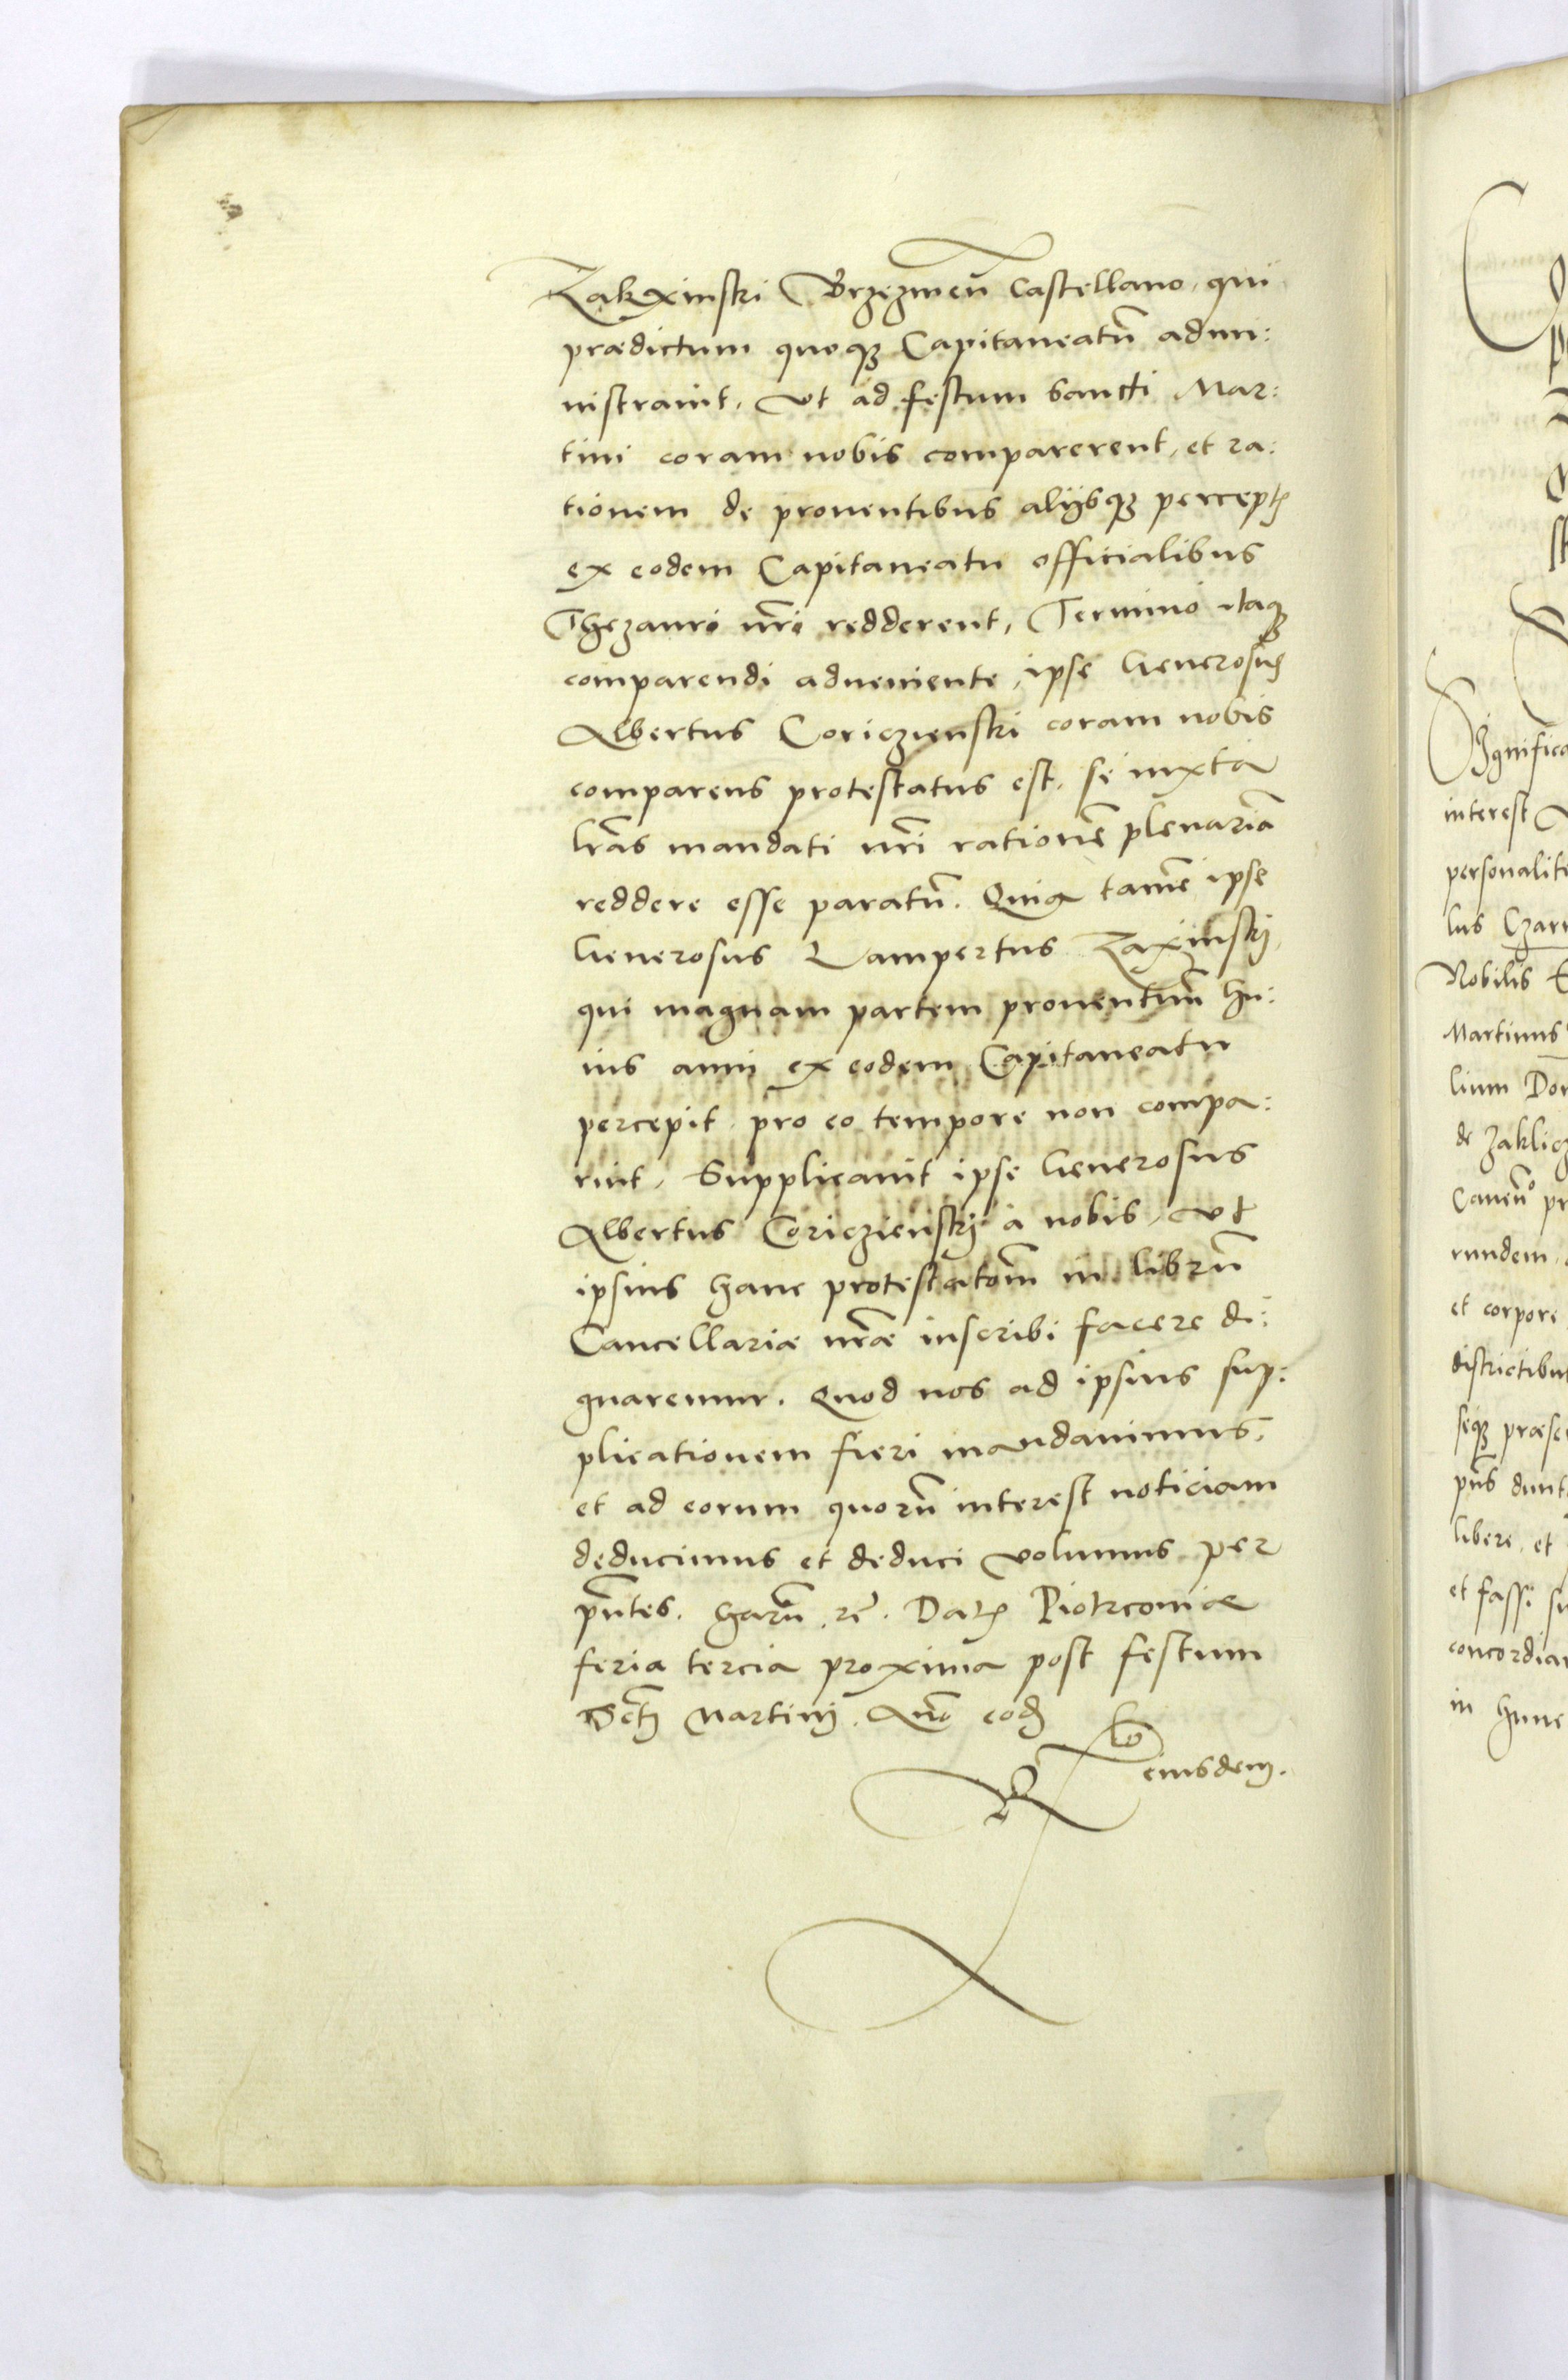 Zakxinski Brzezinen̄ Castellano, qui
prædictum quoqꝫ Capitaneatū admi:
nistrauit, vt ad festum Sancti Mar:
tini coram nobis comparerent, et ra:
tionem de prouentibus alijsqꝫ perceptꝭ
ex eodem Capitaneatu officialibus
Thezauri nr̄i redderent, Termino itaqꝫ
comparendi adueniente, ipse Generosus
Albertus Coriczienski coram nobis
comparens protestatus est, se iuxta
lrās mandati nr̄i rationē plenariā
reddere esse paratū. Quia tamē ipse
Generosus Lampertus Zaxinskj,
qui magnam partem prouentuū hu:
ius anni ex eodem Capitaneatu
percepit, pro eo tempore non compa:
ruit, Supplicauit ipse Generosus
Albertus Coriczienskj a nobis, vt
ipsius hanc protestatōm in librū
Cancellariæ nr̄æ inscribi facere di:
gnaremur. Quod nos ad ipsius sup:
plicationem fieri mandauimus,
et ad eorum quorū interest noticiam
deducimus et deduci volumus per
pn̄tes. Harū rē. Datꝭ Piotrcouiæ
feria tercia proxima post festum
Sctj Martinj. Anō eodꝭ
eiusdem.
Significa
interest
personalit
lus Czar
Nobilis
Martinus
lium Do
de Zaklicz
Caneū pr
rundem
et corpore
districtibu
seqꝫ præse
pn̄s dunt
libere, et
et fassi su
concordia
in hunc